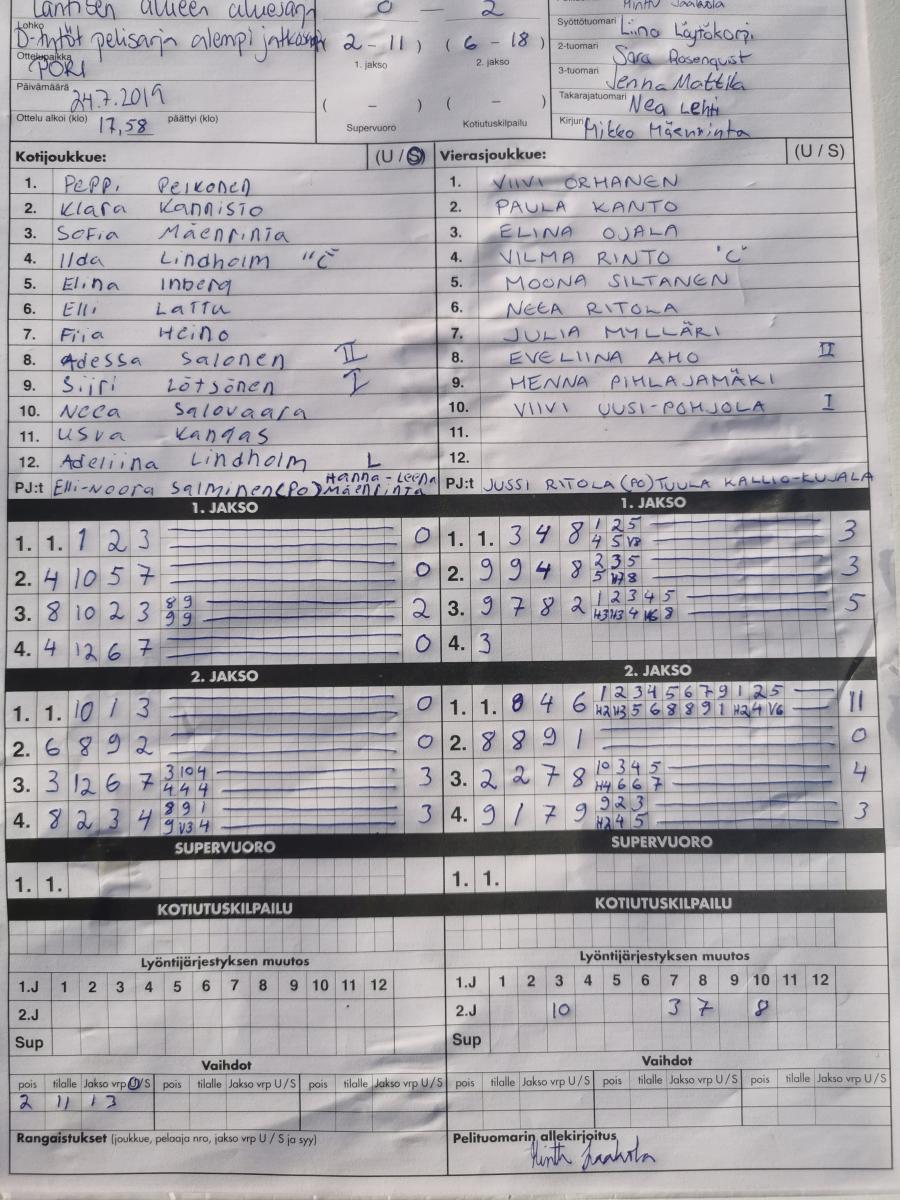 Läntisen alueen aluesarja
0 — 2
Lohko
D-tytöt pelisarja alempi jatkosarja
( 2 - 11 ) ( 6 - 18 )
1. jakso 2. jakso
Ottelupaikka
PORI
Päivämäärä
24.7.2019
( - ) ( - )
Supervuoro Kotiutuskilpailu
Ottelu alkoi (klo) 17,58 päättyi (klo)
Minttu Jaakkola
Syöttötuomari Liina Löytökorpi
2-tuomari Sara Rosenqvist
3-tuomari Jenna Mattila
Takarajatuomari Nea Lehti
Kirjuri Mikko Mäenrinta
Kotijoukkue: (U / S)
1. Peppi Peikonen
2. Klara Kannisto
3. Sofia Mäenrinta
4. Ilda Lindholm "C"
5. Elina Inberg
6. Elli Lattu
7. Fiia Heino
8. Adessa Salonen II
9. Siiri Lötsönen I
10. Neea Salovaara
11. Usva Kangas
12. Adeliina Lindholm L
PJ:t Elli-Noora Salminen (PO) Hanna-Leena Mäenrinta
Vierasjoukkue: (U / S)
1. VIIVI ORHANEN
2. PAULA KANTO
3. ELINA OJALA
4. VILMA RINTO "C"
5. MOONA SILTANEN
6. NEEA RITOLA
7. JULIA MYLLÄRI
8. EVELIINA AHO II
9. HENNA PIHLAJAMÄKI
10. VIIVI UUSI-POHJOLA I
11.
12.
PJ:t JUSSI RITOLA (PO) TUULA KALLIO-KUJALA
1. JAKSO
1. 1. 1 2 3 0
2. 4 10 5 7 0
3. 8 10 2 3 8 9 2
9 9
4. 4 12 6 7 0
1. JAKSO
1. 1. 3 4 8 1 2 5 3
4 5 V8
2. 9 9 4 8 2 3 5 3
5 H7 8
3. 9 7 8 2 1 2 3 4 5 5
H3 H3 4 V6 8
4. 3
2. JAKSO
1. 1. 10 1 3 0
2. 6 8 9 2 0
3. 3 12 6 7 3 10 4 3
4 4 4
4. 8 2 3 4 8 9 1 3
9 V3 4
2. JAKSO
1. 1. 8 4 6 1 2 3 4 5 6 7 9 1 2 5 11
H2 H3 5 6 8 8 9 1 H2 4 V6
2. 8 8 9 1 0
3. 2 2 7 8 10 3 4 5 4
H4 6 6 7
4. 9 1 7 9 9 2 3 3
H2 4 5
SUPERVUORO
1. 1.
SUPERVUORO
1. 1.
KOTIUTUSKILPAILU
KOTIUTUSKILPAILU
Lyöntijärjestyksen muutos
1.J 1 2 3 4 5 6 7 8 9 10 11 12
2.J
Sup
Lyöntijärjestyksen muutos
1.J 1 2 3 4 5 6 7 8 9 10 11 12
2.J 10 3 7 8
Sup
Vaihdot
pois tilalle Jakso vrp U/S pois tilalle Jakso vrp U / S pois tilalle Jakso vrp U / S
2 11 1 3
Vaihdot
pois tilalle Jakso vrp U / S pois tilalle Jakso vrp U / S pois tilalle Jakso vrp U / S
Rangaistukset (joukkue, pelaaja nro, jakso vrp U / S ja syy)
Pelituomarin allekirjoitus
Minttu Jaakkola